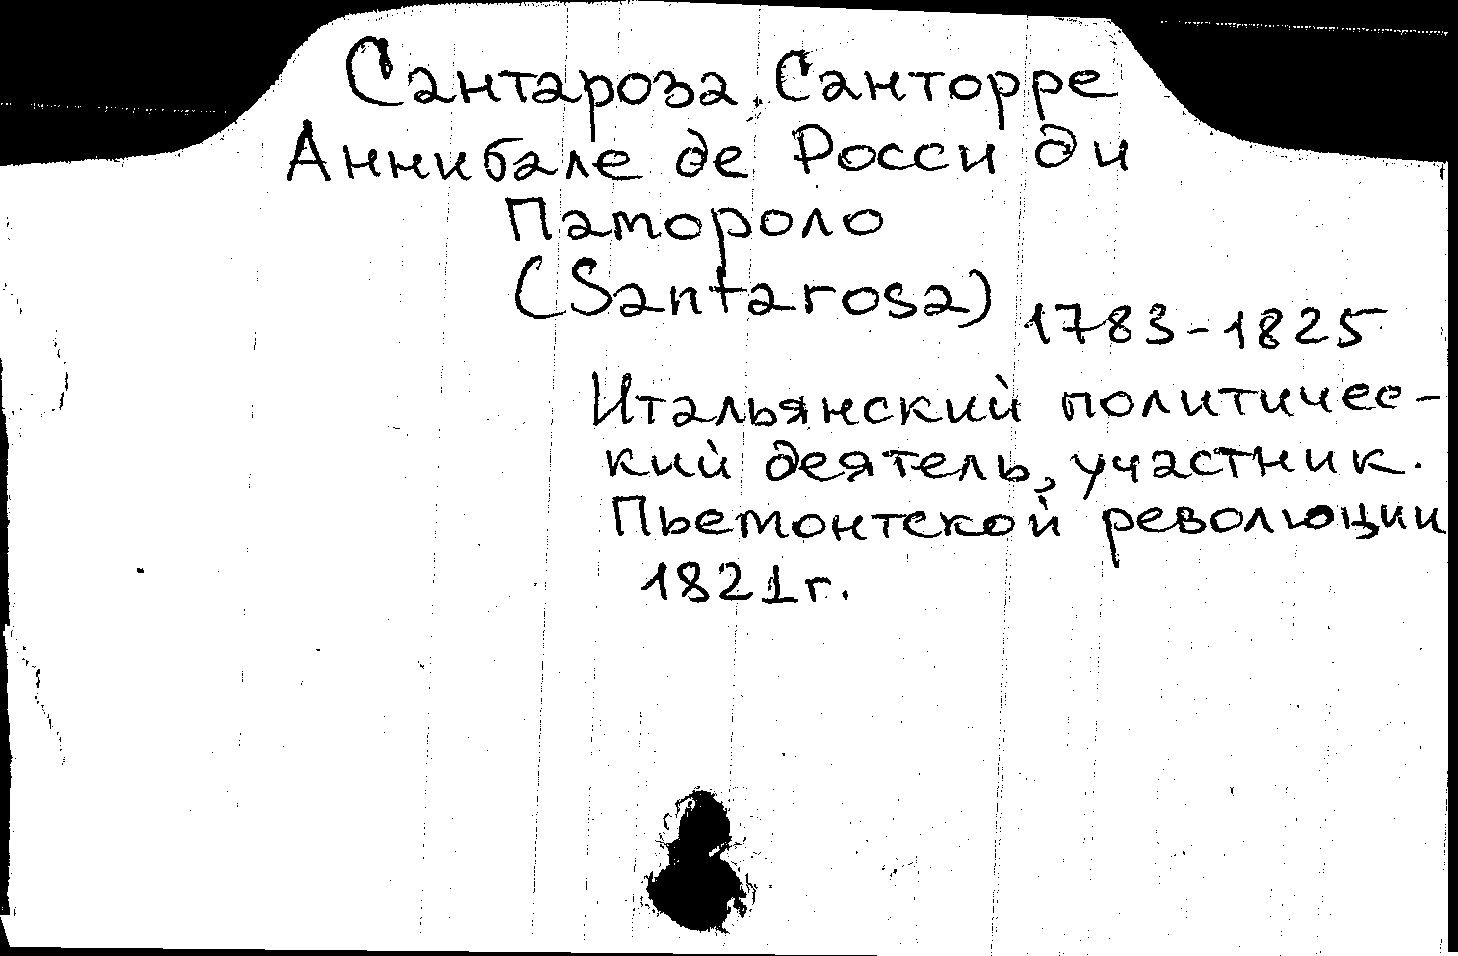 Сантароза, Санторре
Аннибале де Росси ди
Памороло
(Santarosa) 1783-1825
Итальянский политичес-
кий деятель, участник.
Пьемонтской революции
1821г.